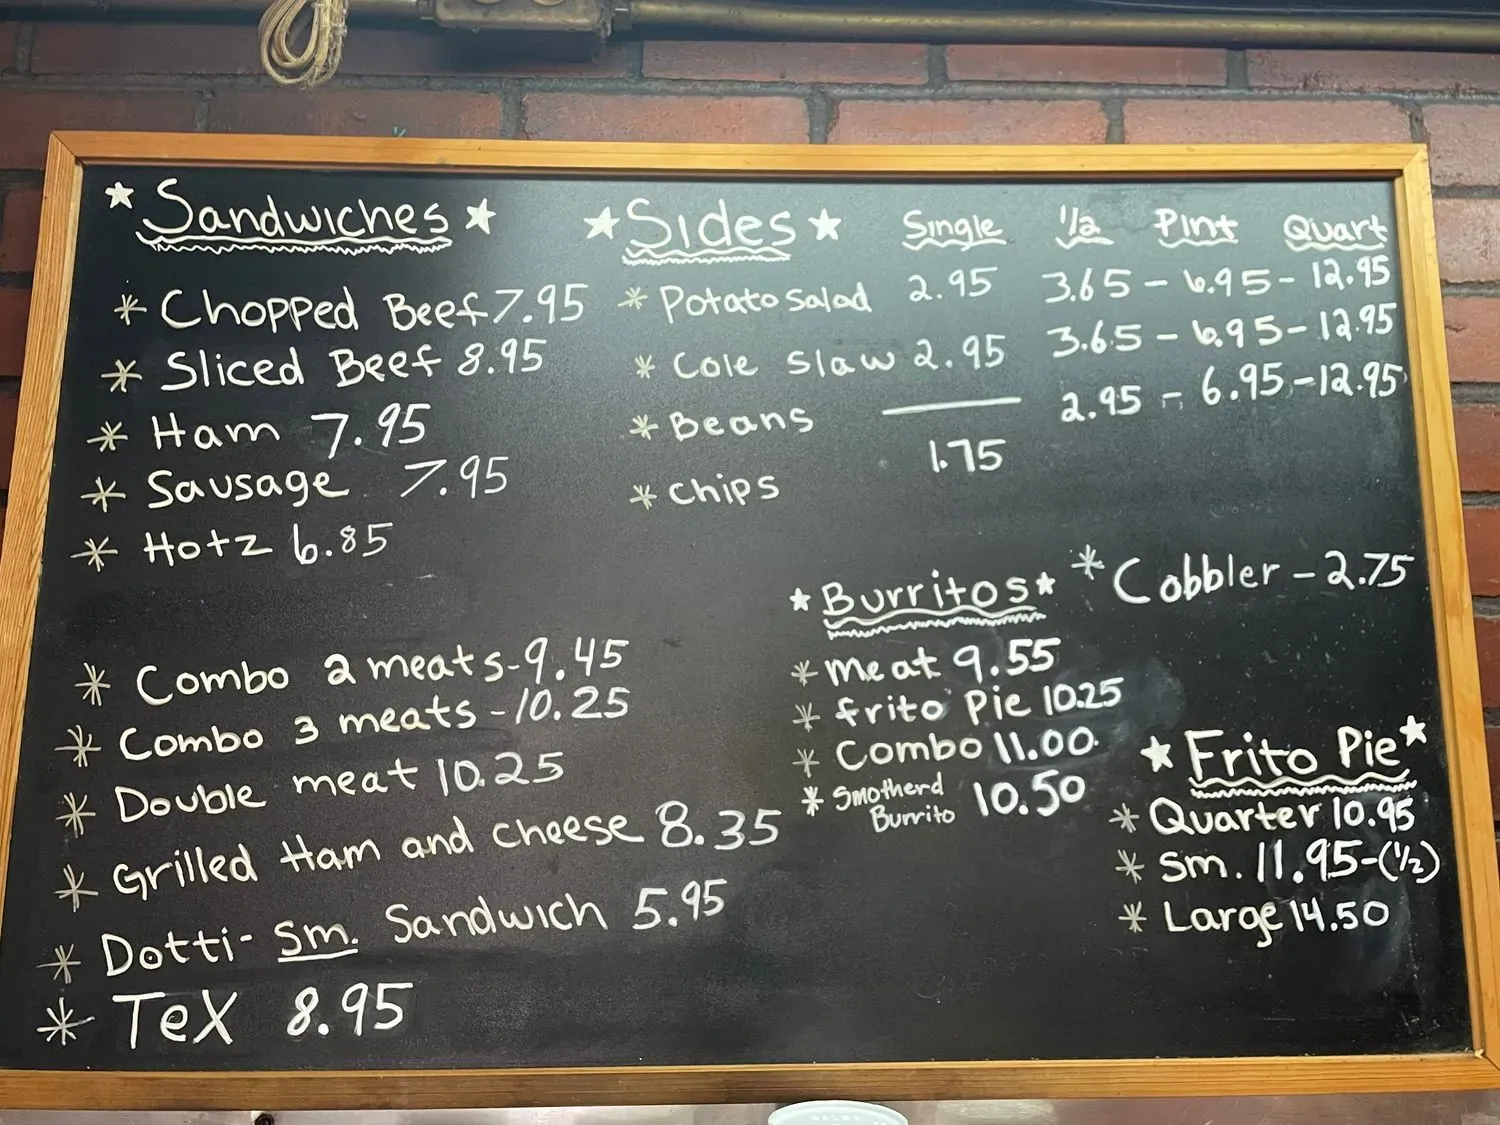 Sandwiches
* Chopped Beef 7.95
* Sliced Beef 8.95
* Ham 7.95
* Sausage 7.95
* Hotz 6.85
* Combo 2 meats-9.45
* Combo 3 meats-10.25
* Double meat 10.25
* Grilled Ham and Cheese 8.35
* Dotti- Sm. Sandwich 5.95
* TeX 8.95
Sides Single 1/2 Pint Quart
* Potato Salad 2.95 3.65 - 6.95 - 12.95
* Cole Slaw 2.95 3.65 - 6.95 - 12.95
* Beans 2.95 - 6.95 - 12.95
* Chips 1.75
* Cobbler - 2.75
Burritos
* Meat 9.55
* Frito Pie 10.25
* Combo 11.00
* Smotherd
Burrito 10.50
Frito Pie
* Quarter 10.95
* Sm. 11.95-(1/2)
* Large 14.50